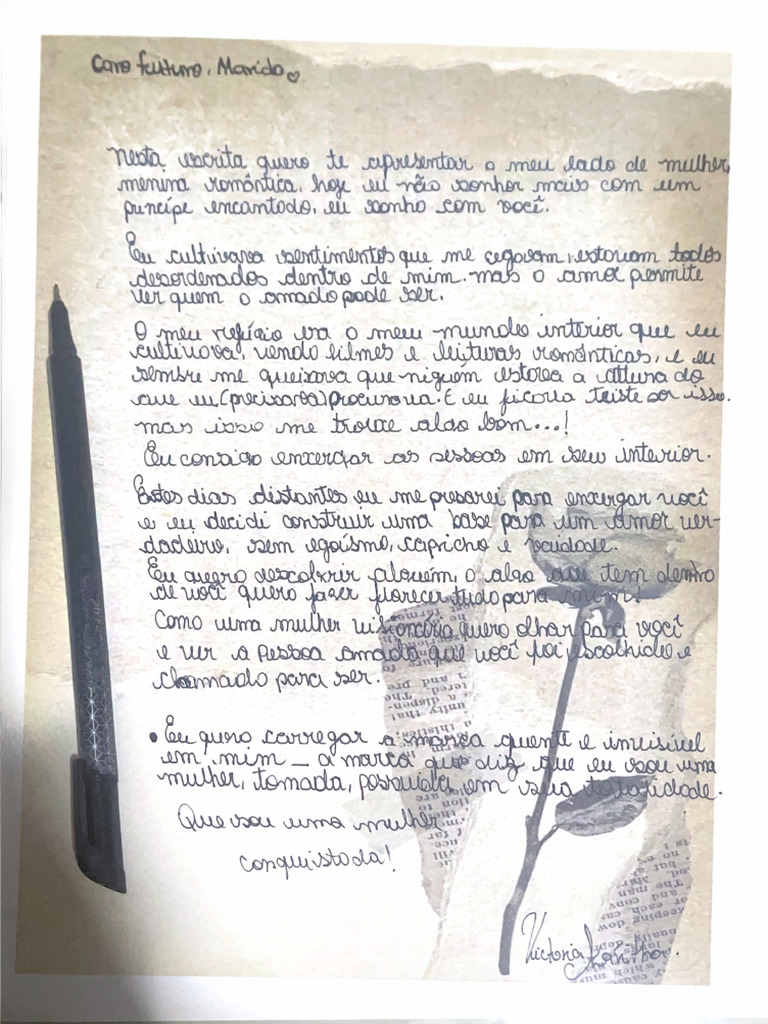 Caro futuro, Marido
Nesta escrita quero te apresentar o meu lado de mulher,
menina romântica, hoje eu não sonhor mais com um
principe encantado, eu sonho com você.
Eu cultivava sentimentos que me cegavam, estavam todos
desordenados dentro de mim. mas o amor permite
ver quem o amado pode ser.
O meu refúcio era o meu mundo interior que eu
cultivava, vendo filmes e leituras românticas, e eu
sempre me queixava que niguém estava a altura do
que eu (precisava) procurava. E eu ficava triste por isso.
mas isso me trouxe algo bom...!
Eu consigo enxergar as pessoas em seu interior.
Estes dias distantes eu me preparei para enxergar você
e eu decidi construir uma base para um amor ver-
dadeiro, sem egoísmo, capricho e vaidade.
Eu quero descobrir alguém, o algo que tem dentro
de você quero fazer florecer tudo para mim!
Como uma mulher visionária quero olhar para você
e ver a pessoa amada que você foi escolhido e
chamado para ser.
• Eu quero carregar a marca quente e invisível
em mim — a marca que diz que eu sou uma
mulher, tomada, possuída em sua totalidade.
Que sou uma mulher
conquistada!
Victoria